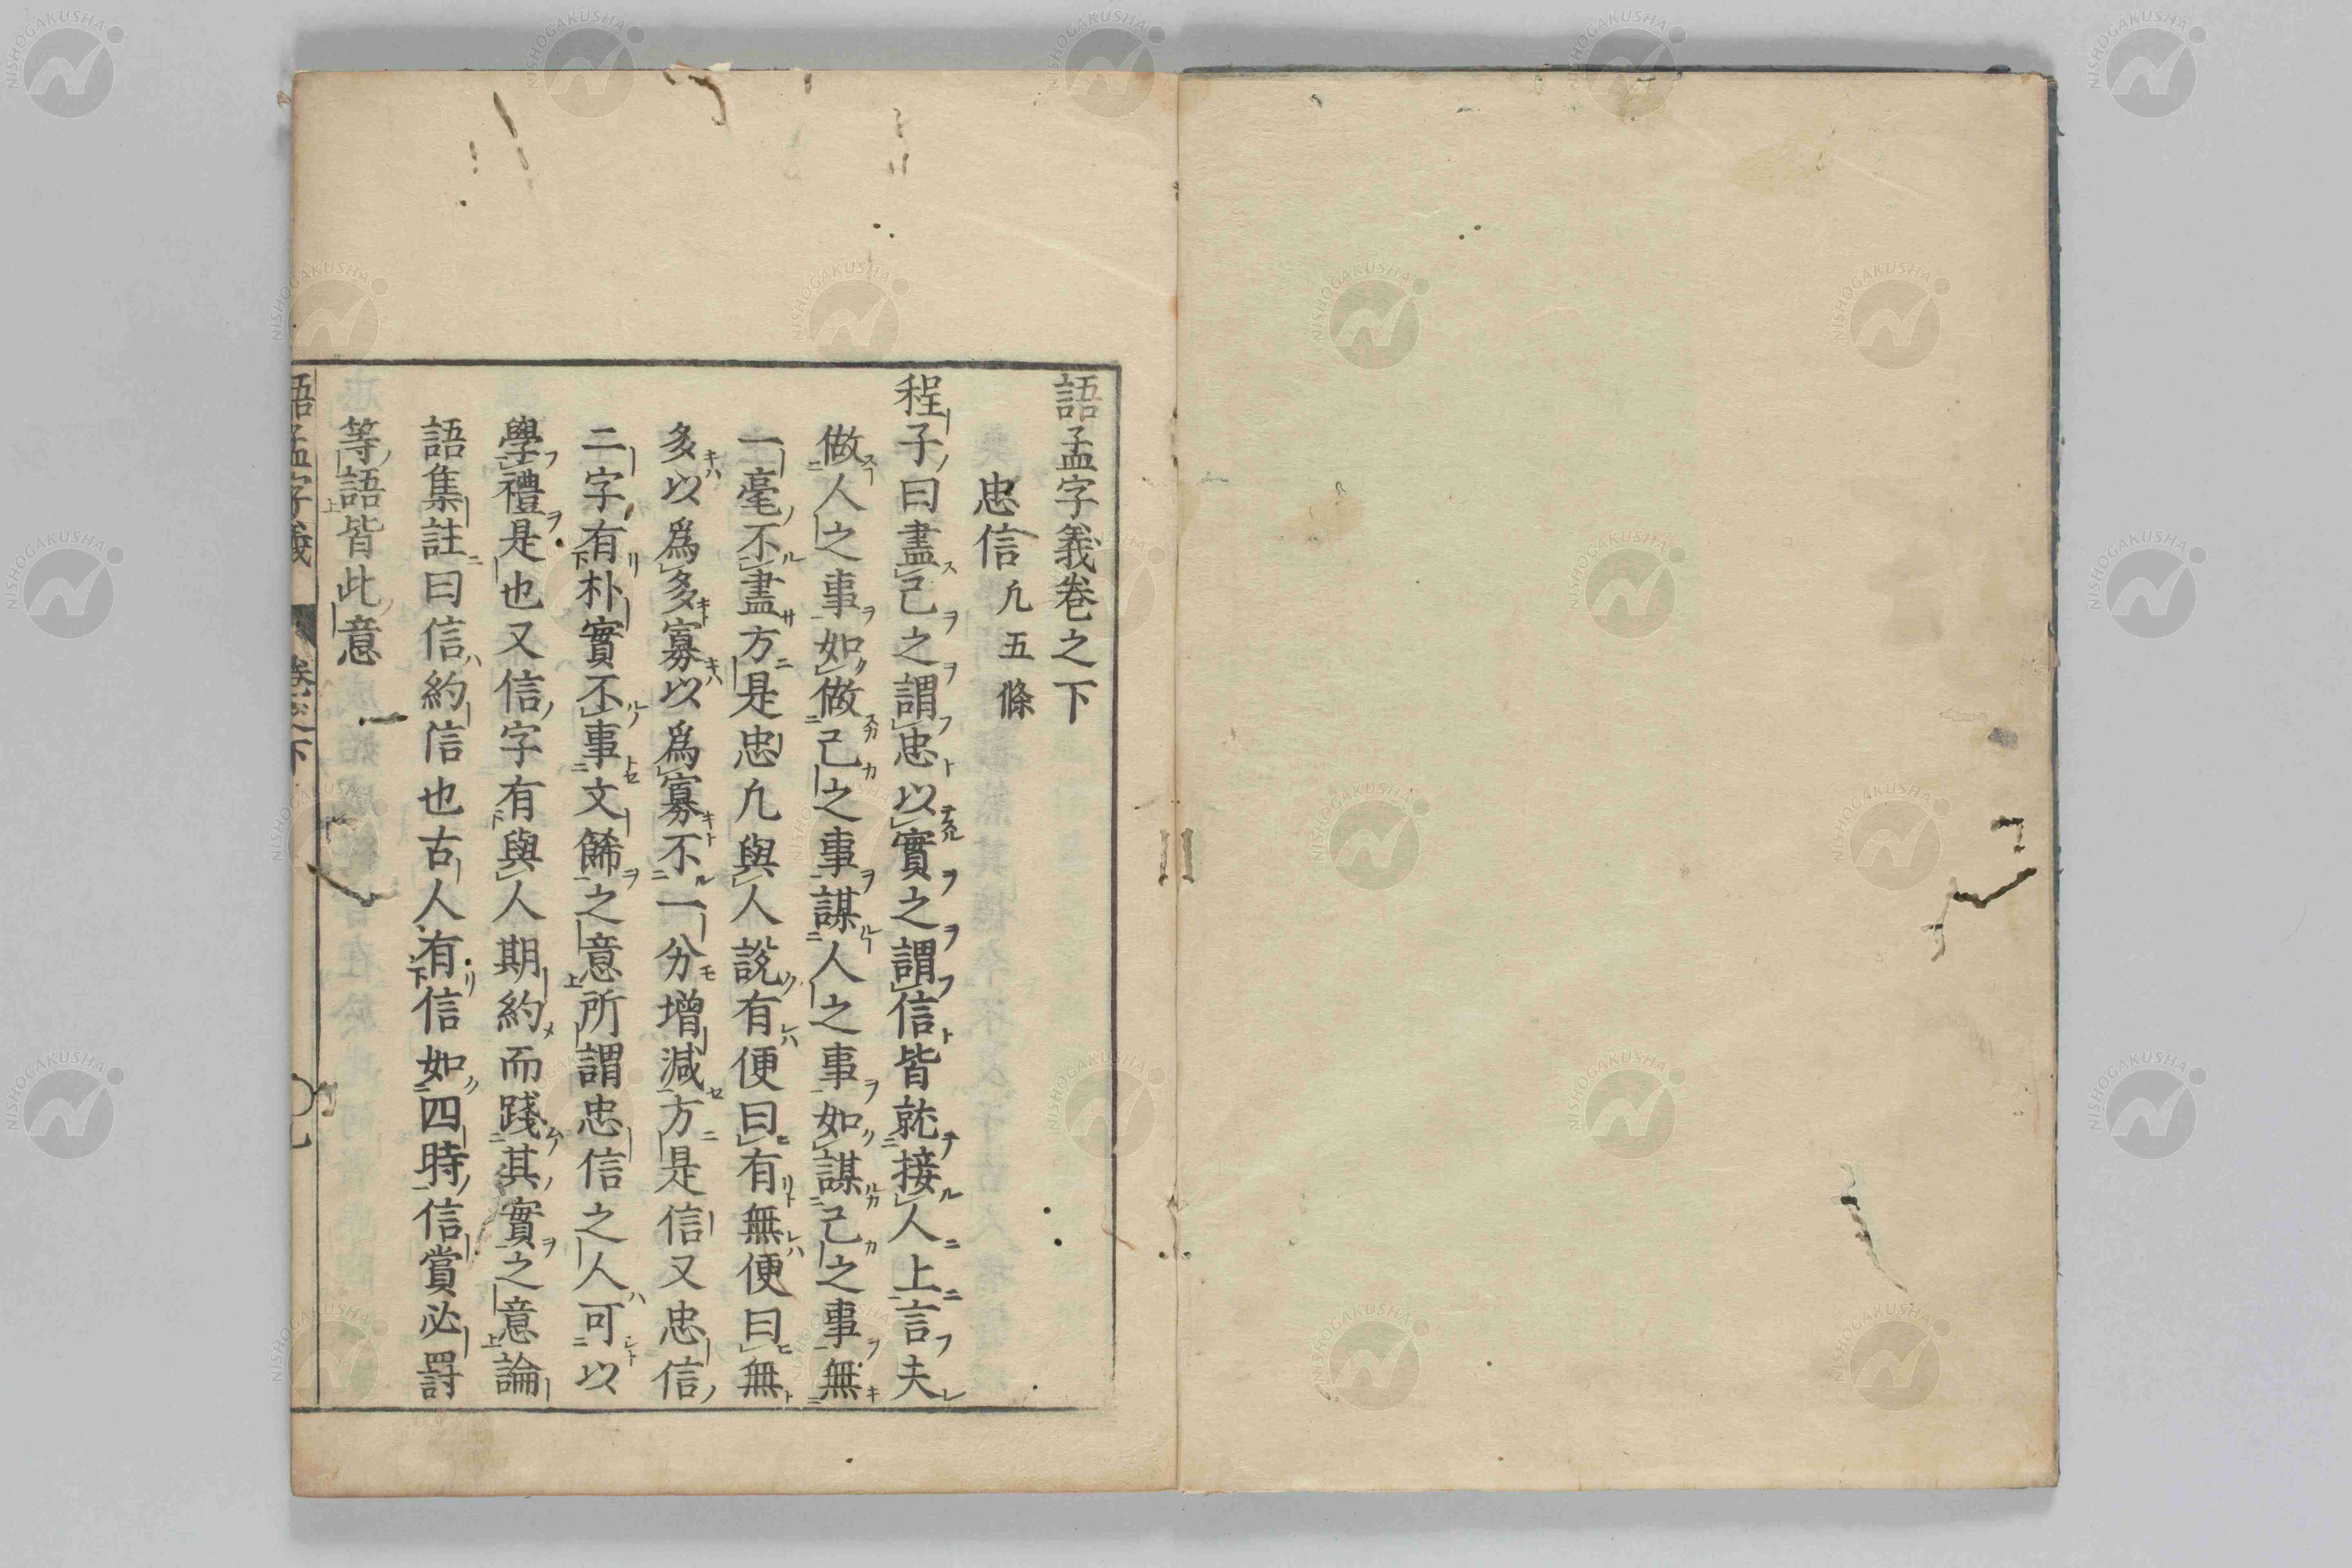 語孟字義卷之下
忠信 凢五條
程子曰盡己之謂忠以實之謂信皆就接人上言夫
做人之事如做己之事謀人之事如謀己之事無
一毫不盡方是忠凢與人說有便曰有無便曰無
多以爲多寡以爲寡不一分增減方是信又忠信
二字有朴實不事文餙之意所謂忠信之人可以
學禮是也又信字有與人期約而踐其實之意論
語集註曰信約信也古人有信如四時信賞必罸
等語皆此意
語孟字義 卷之下
NISHOGAKUSHA